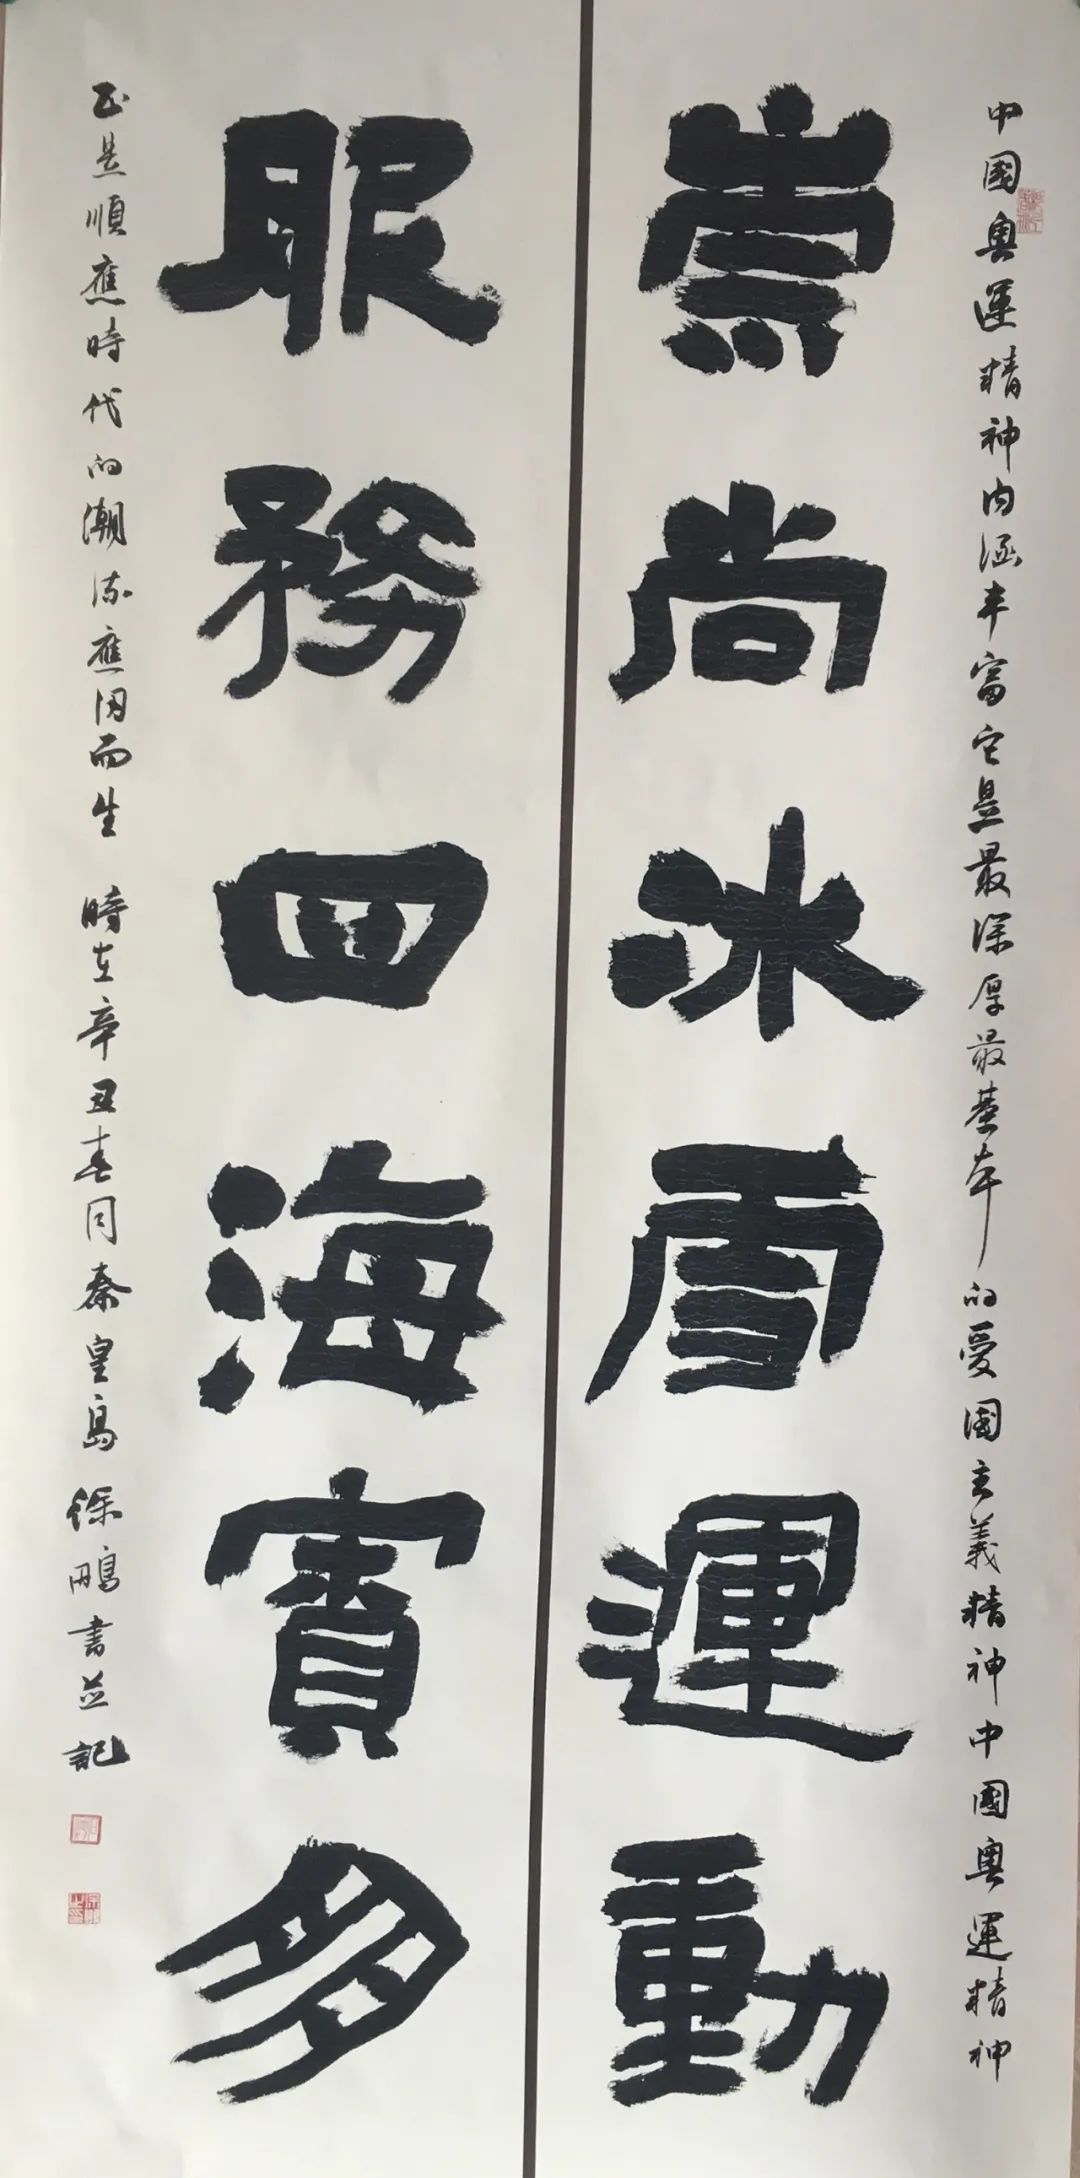 中國奧運精神内涵丰富它是最深厚最基本的愛國主義精神中國奧運精神
崇尚冰雪運動
服務四海賓多
正是順應時代的潮流應因而生 時在辛丑春月秦皇島 徐鵬書並記